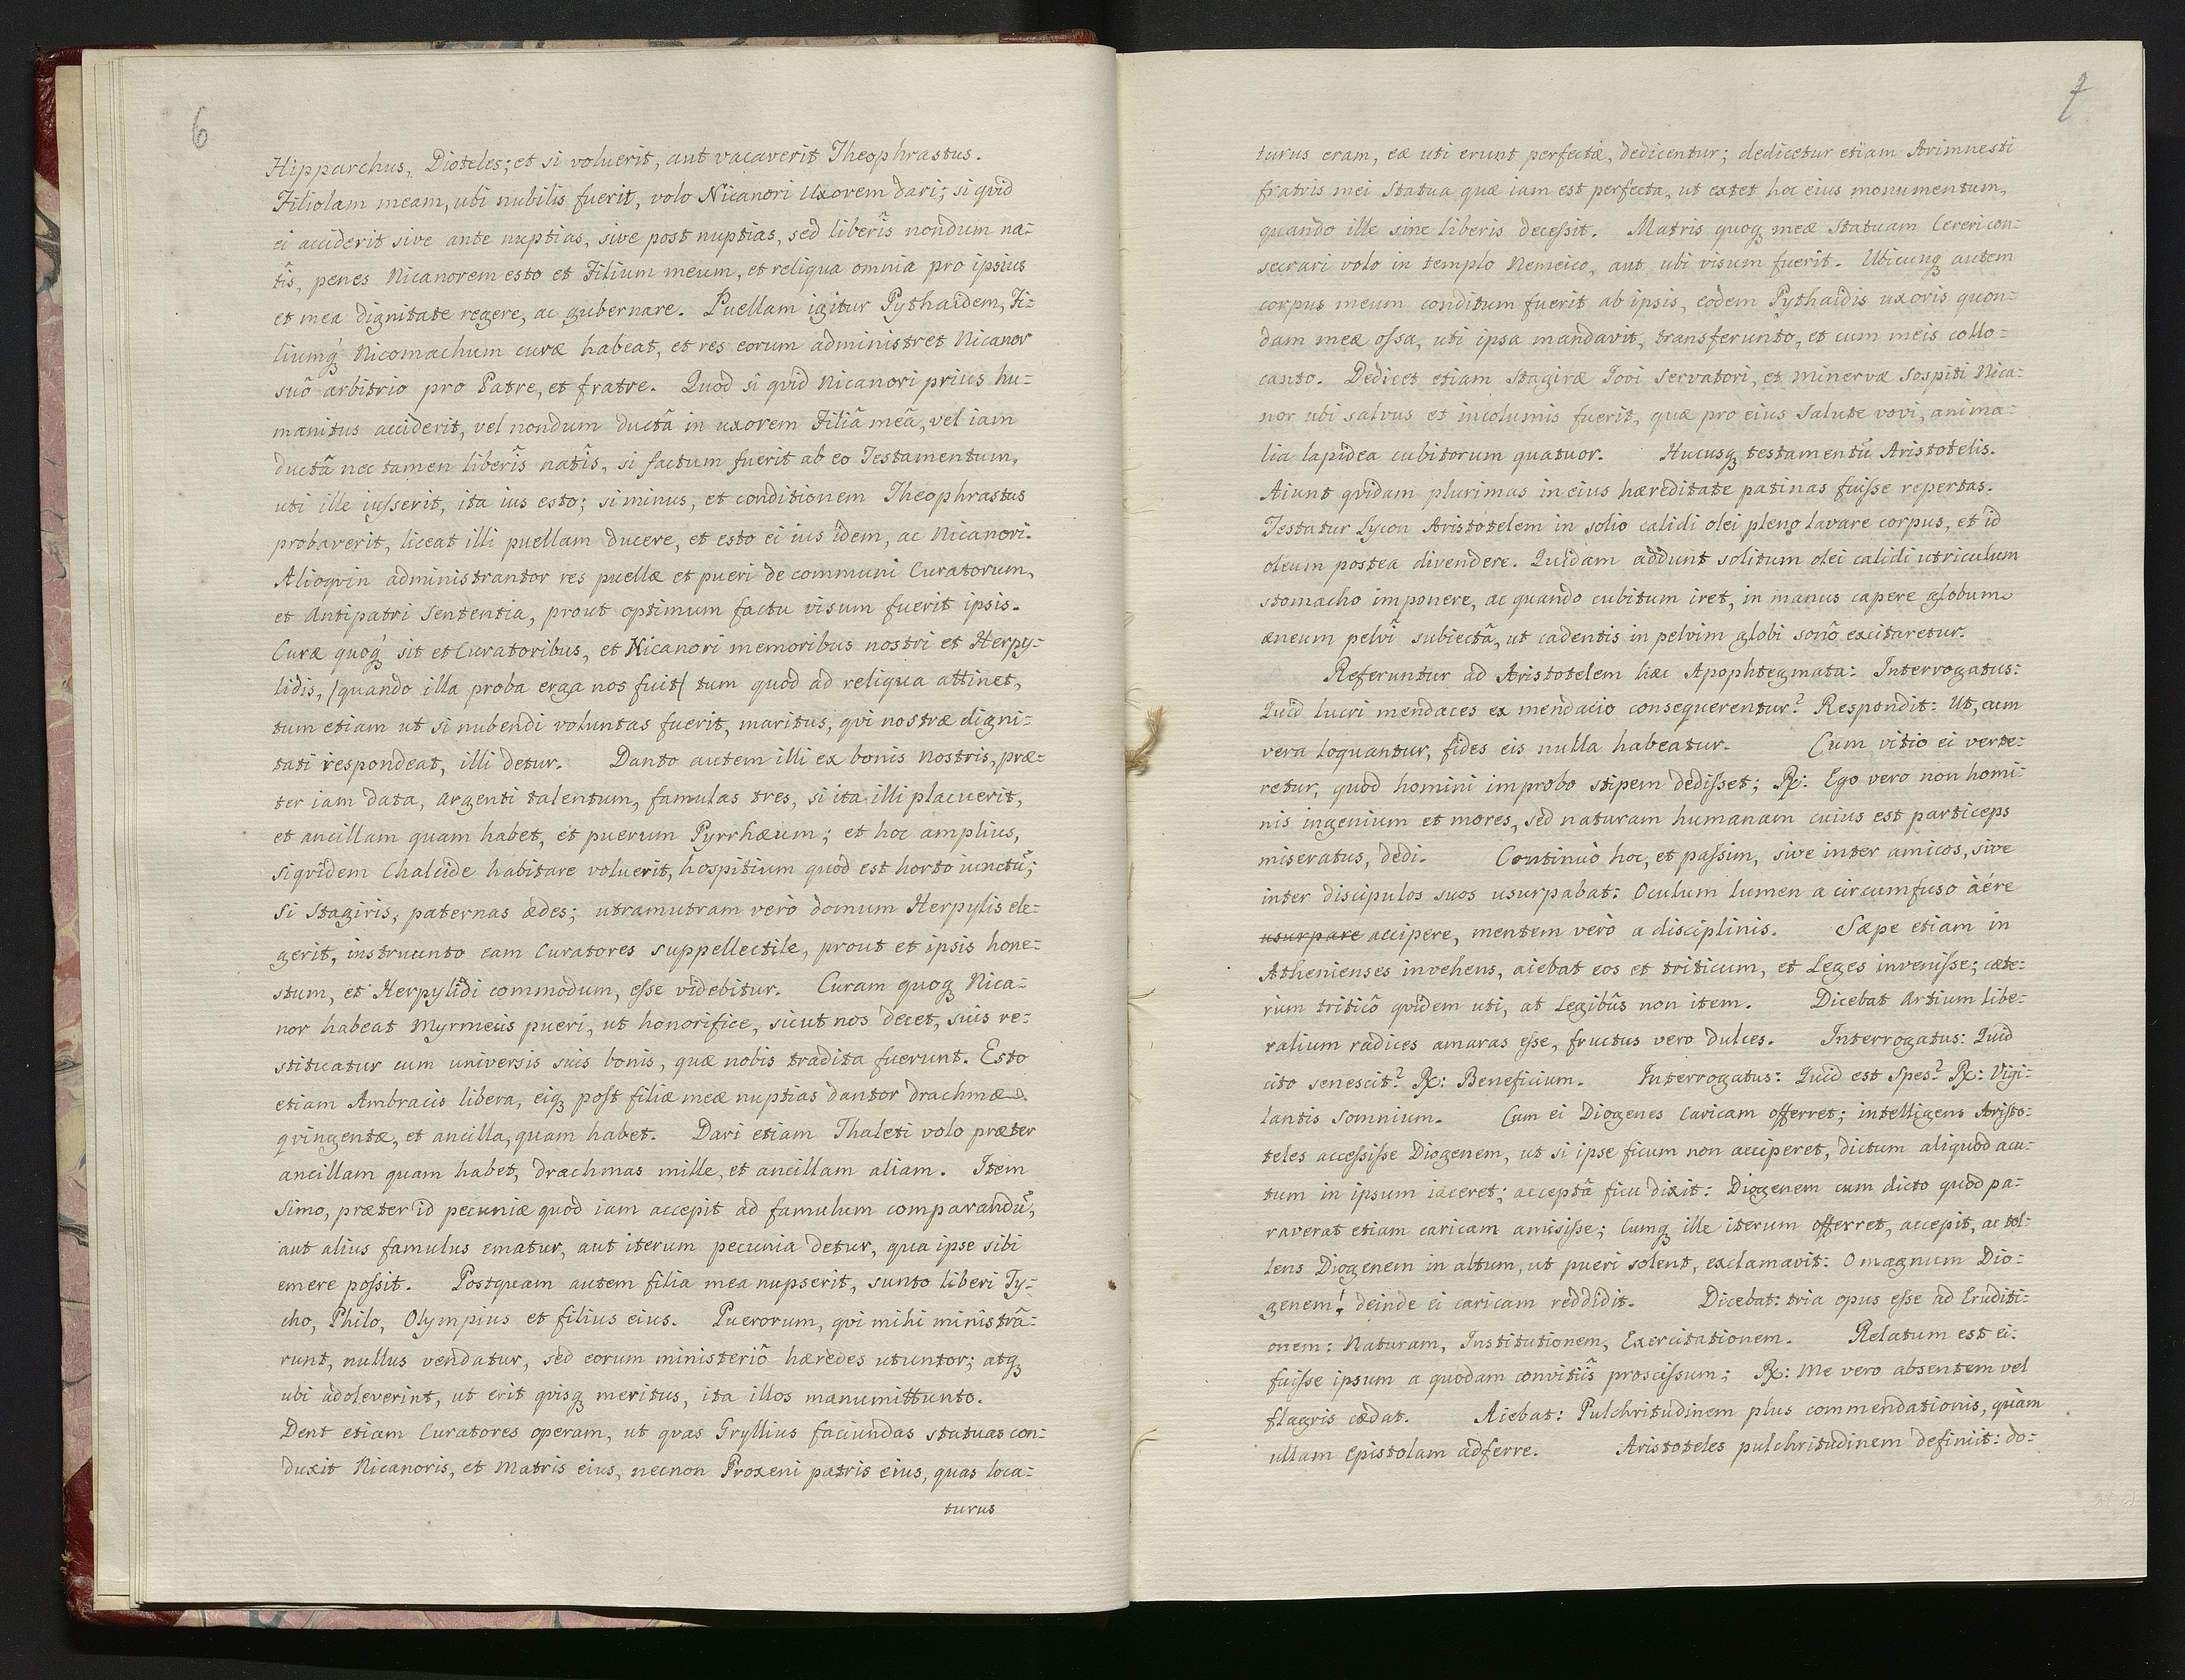 6
Hipparchus, Dioteles; et si voluerit, aut vacaverit Theophrastus.
Filiolam meam, ubi nubilis fuerit, volo Nicanori Uxorem dari; si qvid
ei acciderit sive ante nuptias, sive post nuptias, sed liberîs nondum na=
tîs, penes Nicanorem esto et Filium meum, et reliqua omnia pro ipsius
et mea dignitate regere, ac gubernare. Puellam igitur Pythaidem, Fi=
liumq́ꝫ Nicomachum curæ habeat, et res eorum administret Nicanor
suô arbitrio pro Patre, et fratre. Quod si qvid Nicanori prius hu=
manitus acciderit, vel nondum ductâ in uxorem Filiâ meâ, vel iam
ductâ nec tamen liberîs natîs, si factum fuerit ab eo Testamentum,
uti ille iusserit, ita ius esto; si minus, et conditionem Theophrastus
probaverit, liceat illi puellam ducere, et esto ei ius idem, ac Nicanori.
Alioqvin administrantor res puellæ et pueri de communi Curatorum,
et Antipatri Sententia, prout optimum factu visum fuerit ipsis.
Curæ quoq́ꝫ sit et Curatoribus, et Nicanori memoribus nostri et Herpy=
lidis, /quando illa proba erga nos fuit/ tum quod ad reliqua attinet,
tum etiam ut si nubendi voluntas fuerit, maritus, qvi nostræ digni=
tati respondeat, illi detur. Danto autem illi ex bonis nostris, præ=
ter iam data, argenti talentum, famulas tres, si ita illi placuerit,
et ancillam quam habet, et puerum Pyrrhæum; et hoc amplius,
siqvidem Chalcide habitare voluerit, hospitium quod est horto iunctũ;
Si Stagiris, paternas ædes; utramutram verò domum Herpylis ele=
gerit, instruunto eam Curatores suppellectile, prout et ipsis hone=
stum, et Herpylidi commodum, esse videbitur. Curam quoqꝫ Nica=
nor habeat Myrmecis pueri, ut honorifice, sicut nos decet, suis re=
stituatur cum universis suis bonis, quæ nobis tradita fuerunt. Esto
etiam Ambracis libera, eiqꝫ post filiæ meæ nuptias dantor drachmæ
qvingentæ, et ancilla, quam habet. Dari etiam Thaleti volo præter
ancillam quam habet, drachmas mille, et ancillam aliam. Item
Simo, præter id pecuniæ quod iam accepit ad famulum comparandũ,
aut alius famulus ematur, aut iterum pecunia detur, qua ipse sibi
emere possit. Postquam autem filia mea nupserit, sunto liberi Ty=
cho, Philo, Olympius et filius eius. Puerorum, qvi mihi ministrâ=
runt, nullus vendatur, sed eorum ministeriô hæredes utuntor; atqꝫ
ubi adoleverint, ut erit qvisqꝫ meritus, ita illos manumittunto.
Dent etiam Curatores operam, ut qvas Gryllius faciundas statuas con=
duxit Nicanoris, et Matris eius, necnon Proxeni patris eius, quas loca=
turus
7
turus eram, eæ uti erunt perfectæ, dedicentur; dedicetur etiam Arimnesti
fratris mei Statua quæ iam est perfecta, ut extet hoc eius monumentum,
quando ille sine liberis decessit. Matris quoqꝫ meæ Statuam Cereri con=
secrari volo in templo Nemeico, aut ubi visum fuerit. Ubicunqꝫ autem
corpus meum conditum fuerit ab ipsis, eodem Pythaidis uxoris quon=
dam meæ ossa, uti ipsa mandavit, transferunto, et cum meis collo=
canto. Dedicet etiam Stagiræ Iovi Servatori, et Minervæ Sospiti Nica=
nor ubi salvus et incolumis fuerit, quæ pro eius Salute vovi, anima=
lia lapidea cubitorum quatuor. Hucusqꝫ testamentũ Aristotelis.
Aiunt qvidam plurimas in eius hæreditate patinas fuisse repertas.
Testatur Lycon Aristotelem in solio calidi olei pleno lavare corpus, et id
oleum postea divendere. Quidam addunt solitum olei calidi utriculum
stomacho imponere, ac quando cubitum iret, in manus capere globum
æneum pelvî subiectâ, ut cadentis in pelvim globi sonô excitaretur.
Referuntur ad Aristotelem hæc Apophtegmata: Interrogatus:
Quid lucri mendaces ex mendacio consequerentur? Respondit: Ut, cum
vera loquantur, fides eis nulla habeatur. Cum vitio ei verte=
retur, quod homini improbo stipem dedisset; ℞: Ego vero non homi=
nis ingenium et mores, sed naturam humanam cuius est particeps
miseratus, dedi. Continuò hoc, et passim, sive inter amicos, sive
inter discipulos suos usurpabat: Oculum lumen a circumfuso àére
usurpare accipere, mentem verò a disciplinis. Sæpe etiam in
Athenienses invehens, aiebat eos et triticum, et Leges invenisse; cæte=
rum triticô qvidem uti, at Legibûs non item. Dicebat Artium libe=
ralium radices amaras esse, fructus vero dulces. Interrogatus: Quid
cito senescit? ℞: Beneficium. Interrogatus: Quid est Spes? ℞: Vigi=
lantis Somnium. Cum ei Diogenes Caricam offerret; intelligens Aristo=
teles accessisse Diogenem, ut si ipse ficum non acciperet, dictum aliquod acu=
tum in ipsum iaceret; acceptâ ficu dixit: Diogenem cum dicto quod pa=
raverat etiam caricam amisisse; Cumqꝫ ille iterum offerret, accepit, ac tol=
lens Diogenem in altum, ut pueri solent, exclamavit: O magnum Dio=
genem! deinde ei caricam reddidit. Dicebat: tria opus esse ad Eruditi=
onem: Naturam, Institutionem, Exercitationem. Relatum est ei:
fuisse ipsum a quodam convitiîs proscissum; ℞: Me vero absentem vel
flagris cædat. Aiebat: Pulchritudinem plus commendationis, quàm
ullam Epistolam adferre. Aristoteles pulchritudinem definiit: do=